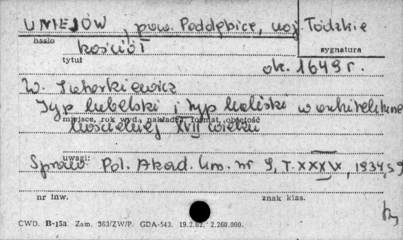 UNIEJÓW, pow. Poddębice, woj. Łódzkie
hasło
kościół
sygnatura
tytuł
ok. 1649 r.
W. Tatarkiewicz
Typ lubelski i typ kaliski w architekturze
miejsce, rok wyd., nakładca, format, objętość
kościelnej XVII wieku
uwagi:
Sprawo. Pol. Akad. Um. nr 9, T. XXXIX, 1934, s 9
nr inw.
znak klas.
CWD. B-15a. Zam. 363/ZW/P. GDA-543. 19.2.62. 2.260.000.